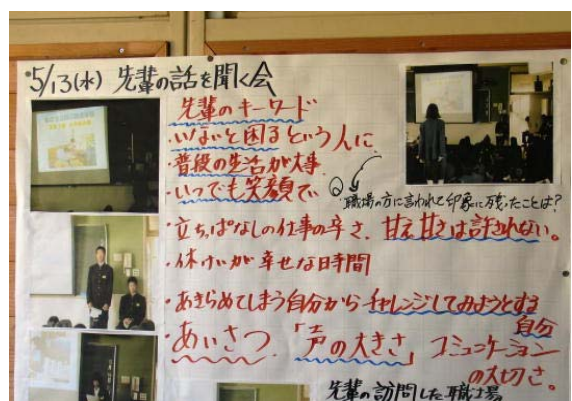 5/13(水) 先輩の話を聞く会
先輩のキーワード
・いないと困るという人に
・普段の生活が大事
・いつでも笑顔で
Q 職場の方に言われて印象に残ったことは?
・立ちっぱなしの仕事の辛さ、甘え甘さは許されない。
・休けいが幸せな時間
・あきらめてしまう自分からチャレンジしてみようとする
自分
・あいさつ、「声の大きさ」コミュニケーション
の大切さ。
先輩の訪問した職場